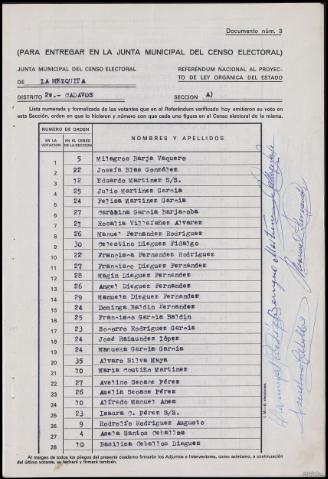 Documento núm. 3
(PARA ENTREGAR EN LA JUNTA MUNICIPAL DEL CENSO ELECTORAL)
JUNTA MUNICIPAL DEL CENSO ELECTORAL
REFERÉNDUM NACIONAL AL PROYEC-
DE LA MEZQUITA
TO DE LEY ORGÁNICA DEL ESTADO
DISTRITO 2º.- CADAVOS SECCIÓN A)
Lista numerada y formalizada de los votantes que en el Referéndum verificado hoy emitieron su voto en
esta Sección, orden en que lo hicieron y número con que cada uno figura en el Censo electoral de la misma.
NUMERO DE ORDEN
EN LA VOTACION EN EL CENSO DE LA SECCION NOMBRES Y APELLIDOS
1 5 Milagros Barja Vaquero
2 22 Josefa Blas González
3 12 Eduardo Martinez S/S.
4 25 Julio Martinez Garcia
5 24 Felisa Martinez Garcia
6 27 Carolina Garcia Barjacoba
7 25 Rosalia Villafañes Alvarez
8 26 Manuel Fernandez Rodriguez
9 30 Celestino Dieguez Fidalgo
10 22 Francisca Fernandez Rodriguez
11 27 Francisco Dieguez Fernandez
12 28 Magin Dieguez Fernandez
13 26 Angel Dieguez Fernandez
14 29 Manuela Dieguez Fernandez
15 24 Dominga Baldin Fernandez
16 25 Francisco Garcia Baldin
17 23 Socorro Rodriguez Garcia
18 24 José Raimundez López
19 24 Manuela Garcia Garcia
20 35 Alvaro Silva Maya
21 10 Maria Coutiño Martinez
22 27 Avelino Seoane Pérez
23 26 Amelia Seoane Pérez
24 10 Alfredo Manuel Anes
25 23 Isaura C. Pérez S/S
26 9 Rodrolfo Rodriguez Augusto
27 4 Amelia Santos Ceballos
28 10 Basilisa Ceballos Dieguez
Al margen de todos los pliegos del presente cuaderno firmarán los Adjuntos e Interventores, como asimismo, a continuación
del último votante, se fechará y firmará también.